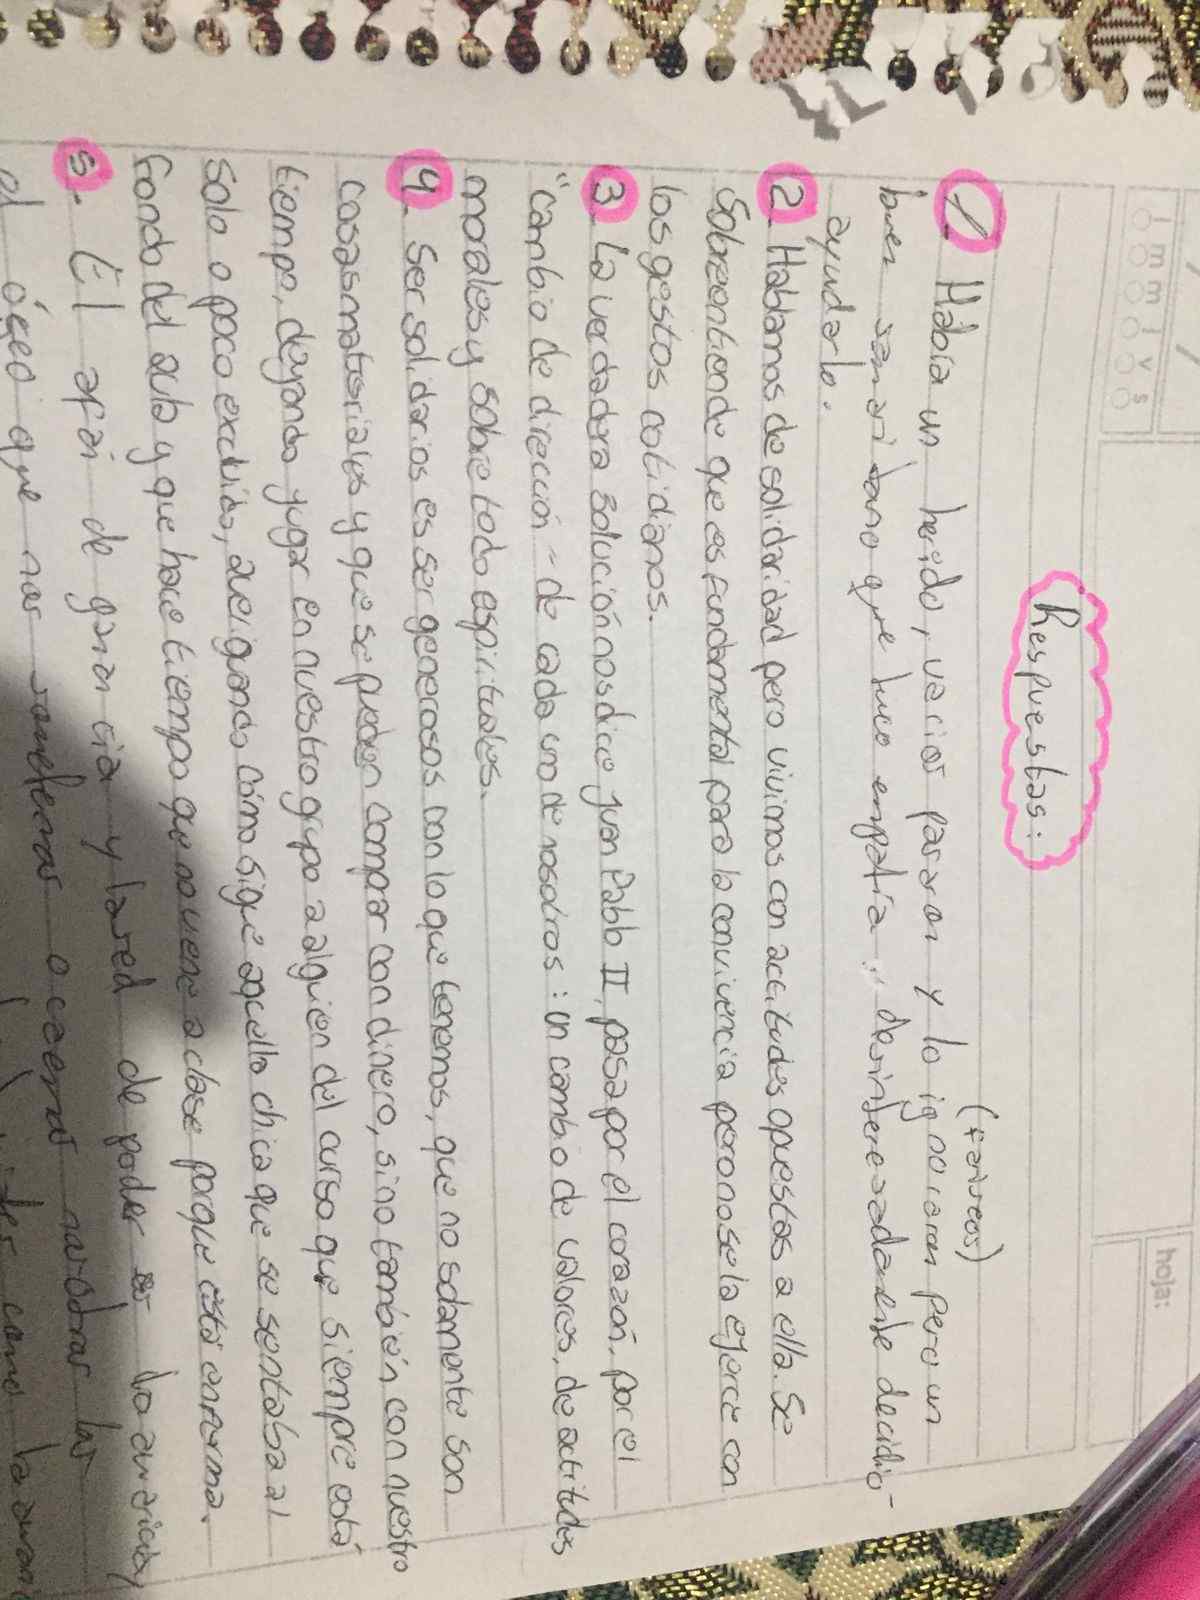 l m m j v s
hoja:
Respuestas:
(fariseos)
1 Había un herido, varios pasaron y lo ignoraron pero un
buen samaritano que tuvo empatía, desinteresadamente decidió
ayudarlo.
2. Hablamos de solidaridad pero vivimos con actitudes opuestas a ella. Se
Sobreentiende que es fundamental para la convivencia pero no se la ejerce con
los gestos cotidianos.
3. La verdadera solución nos dice Juan Pablo II, pasa por el corazón, por el
"cambio de dirección - de cada uno de nosotros: un cambio de valores, de actitudes
morales y sobre todo espirituales.
4. Ser solidarios es ser generosos con lo que tenemos, que no solamente son
cosas materiales y que se pueden comprar con dinero, sino también con nuestro
tiempo, dejando jugar en nuestro grupo a alguien del curso que siempre está
solo o poco excluido, averiguando cómo sigue aquella chica que se sentaba al
fondo del aula y que hace tiempo que no viene a clase porque está enferma.
5. El afán de ganancia y la sed de poder lo avaricia,
el ógeo que nos sometemos o caemos nosotros las
como la avari